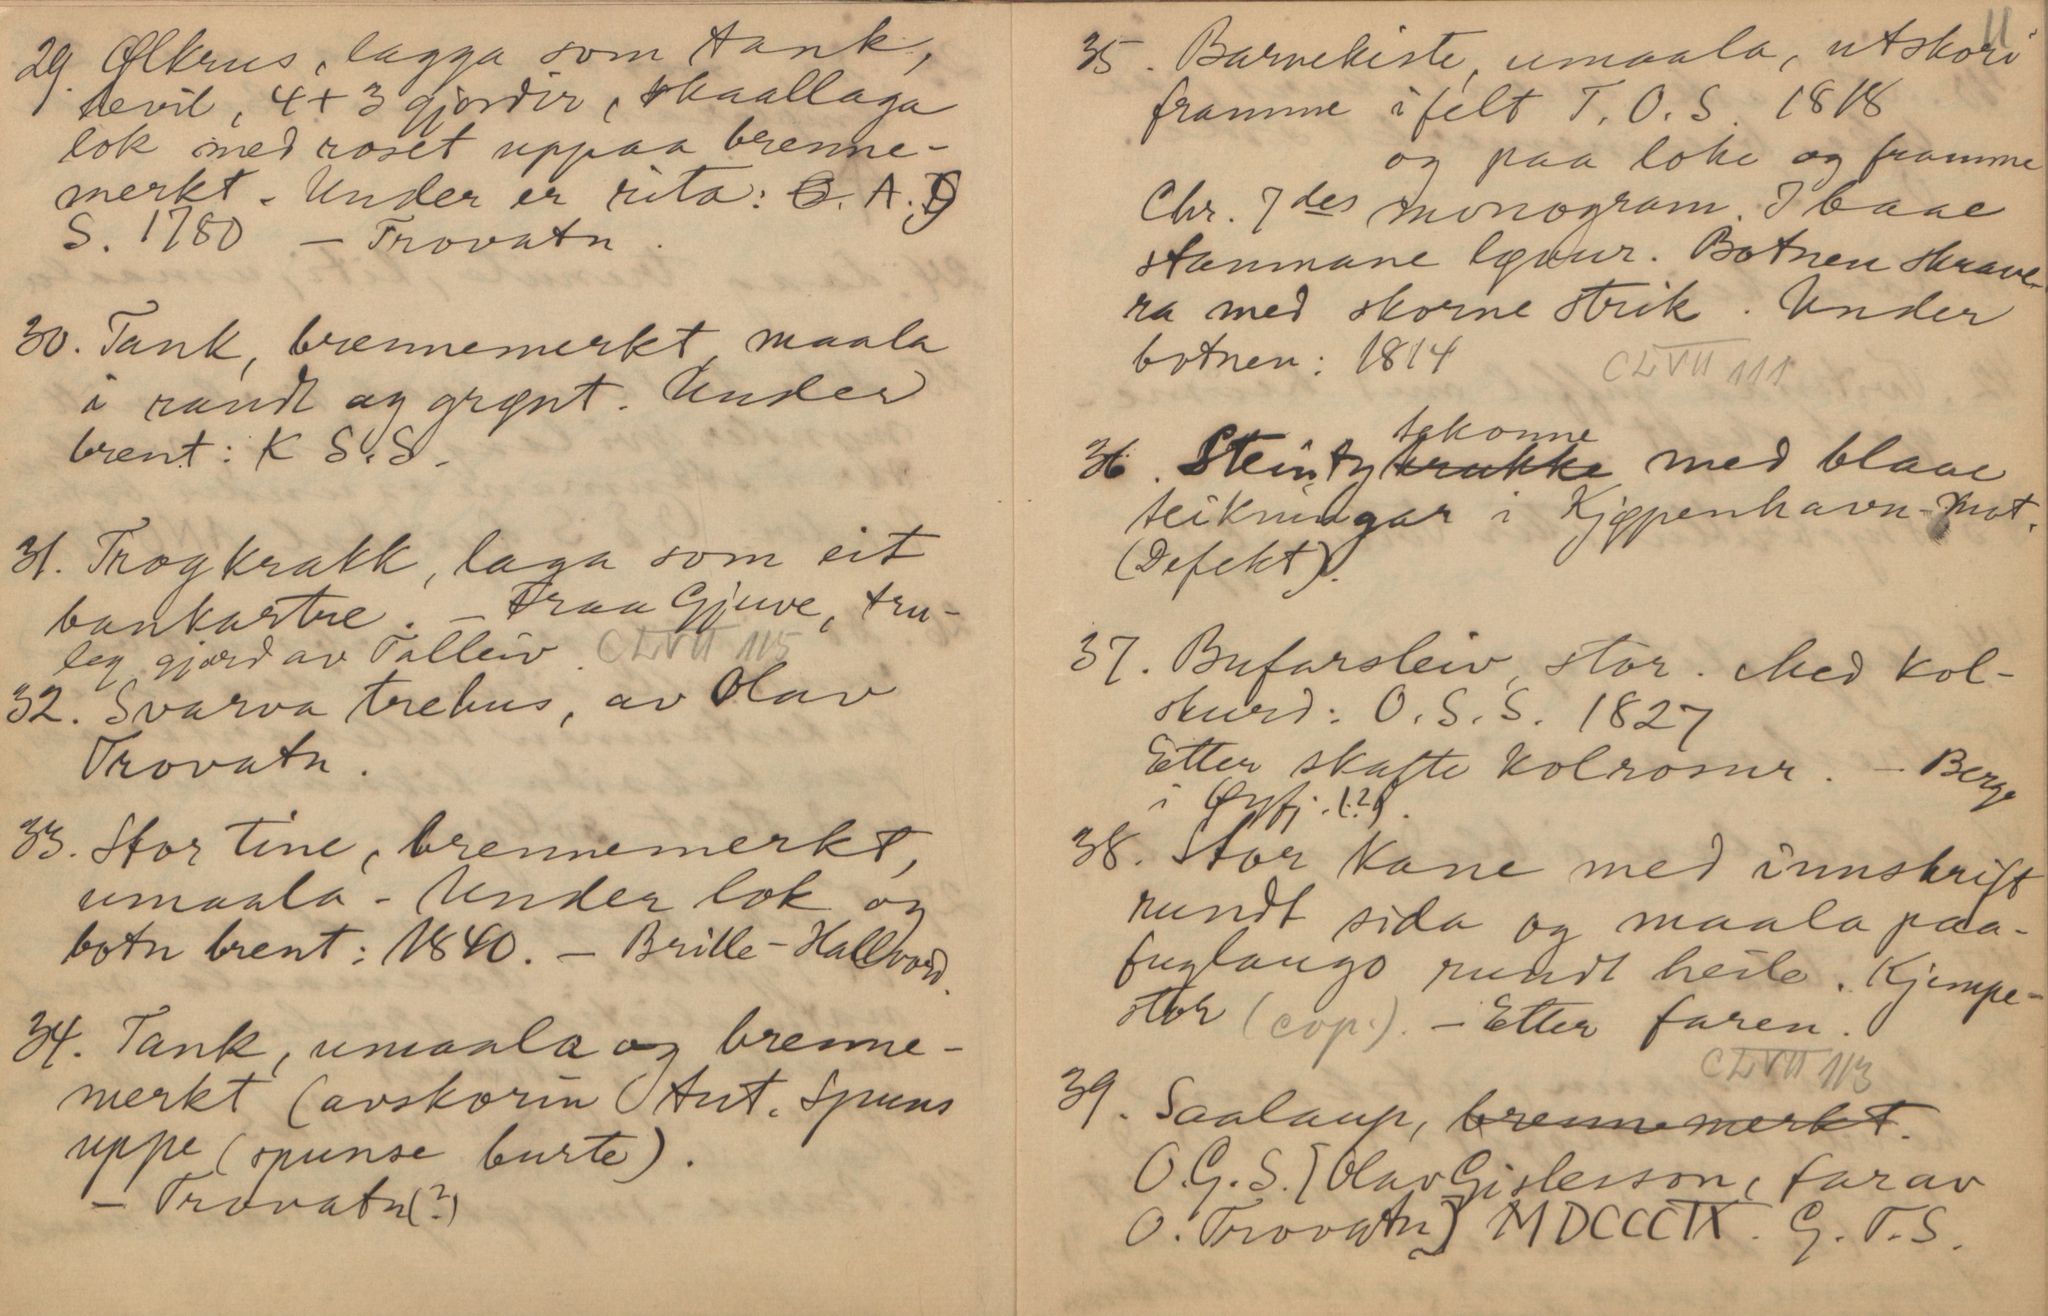 29. Ølkrus, lagga som tank,
tevil, 4+3 gjordir, skaallaga
lok med roset uppaa brenne-
merkt. Under er rita: O. A. D
S. 1780 — Trovatn.
30. Tank, brennemerkt, maala
i raudt og grønt. Under
brent: K S. S.
31. Trog krakk, laga som eit
bankartre. — Fraa Gjuve, tru-
leg gjord av Talleiv. CLVII 115
32. Svarva trebus, av Olav
Trovatn.
33. Stor tine, brennemerkt,
umaala - Under lok og
botn brent: 1840. — Brille-Hallvord.
34. Tank, umaala og brenne-
merkt (avskorin) Tut. Spuns
uppe (spunse burte).
— Trovatn (?)
11
35. Barnekiste, umaala, utskori
framme i felt T. O. S. 1818
og paa loke og framme
Chr. 7des monogram. I baae
stammane løuur. Botnen skrave-
ra med skorne strik. Under
botnen: 1814 CLVII 111
tekonne
36. Steinty krukke med blaae
teikningar i Kjøpenhavn-mot.
(Defekt).
37. Bufarsleiv, stor. Med kol-
skurd: O. S. S. 1827
Etter skafte kolrosur. — Berge
i Øyfj. (?).
38. Stor kane med innskrift
rundt sida og maala paa-
fuglaugo rundt heile. Kjempe-
stor (cop.). — Etter faren.
CLVII 113
39. Saalaup, brennemerkt.
O. G. S. [Olav Gislesson, far av
O. Trovatn] MDCCCIX. G. T. S.